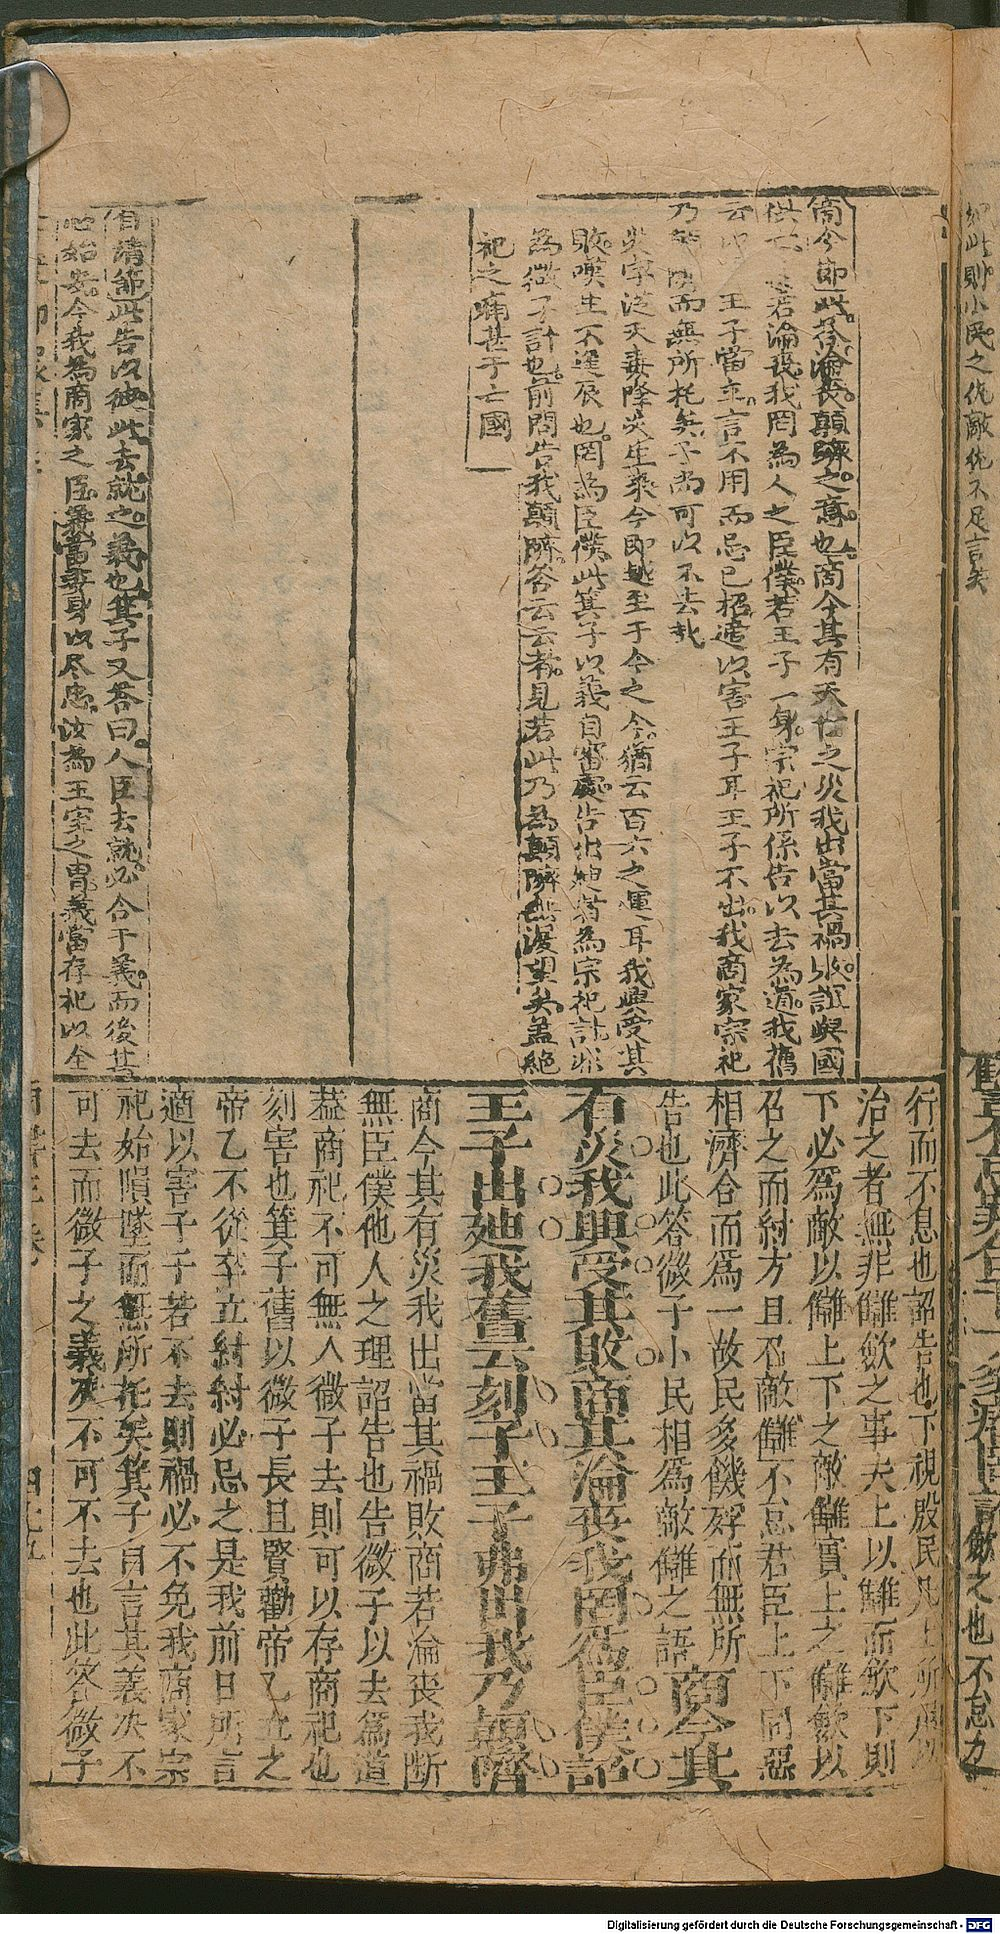 商今節此答淪喪顛隮之意也商今其有天位之災我出當其禍敗誰與國
若淪喪我罔為人之臣僕若王子一身宗祀所係告以去為道我舊
云 王子當立言不用而忌已招遣以害王子耳王子不出我商家宗祀
乃 而無所托矣子尚可以不去哉
災字泛天毒降災生來今即越至于今之今猶云百六之運耳我興受其
敗嘆生不逢辰也罔為臣僕此箕子以義自審處告出迪者為宗祀計
為微子計也前問告我顛隮答云云者見若此乃為顛隮無復望矣蓋絕
祀之痛甚于亡國
自靖節此告以彼此去就之義也箕子又答曰人臣去就必合于義而後其
心始安今我為商家之臣義當委身以尽忠汝為王室之冑義當存祀以全
行而不息也詔告也下視殷民凡上所用以
治之者無非讎斂之事夫上以讎而斂下則
下必爲敵以讎上下之敵讎實上之讎斂以
召之而紂方且召敵讎不怠君臣上下同惡
相濟合而爲一故民多饑殍而無所 商今其
告也此答微子小民相爲敵讎之語
有災我興受其敗商其淪喪我罔爲臣僕詔
王子出迪我舊云刻子王子弗出我乃顛隮
商今其有災我出當其禍敗商若淪喪我斷
無臣僕他人之理詔告也告微子以去爲道
蓋商祀不可無人微子去則可以存商祀也
刻害也箕子舊以微子長且賢勸帝乙立之
帝乙不從卒立紂紂必忌之是我前日所言
適以害子子若不去則禍必不免我商家宗
祀始隕墜而無所托矣箕子自言其義决不
可去而微子之義决不可不去也此答微子
Digitalisierung gefördert durch die Deutsche Forschungsgemeinschaft - DFG